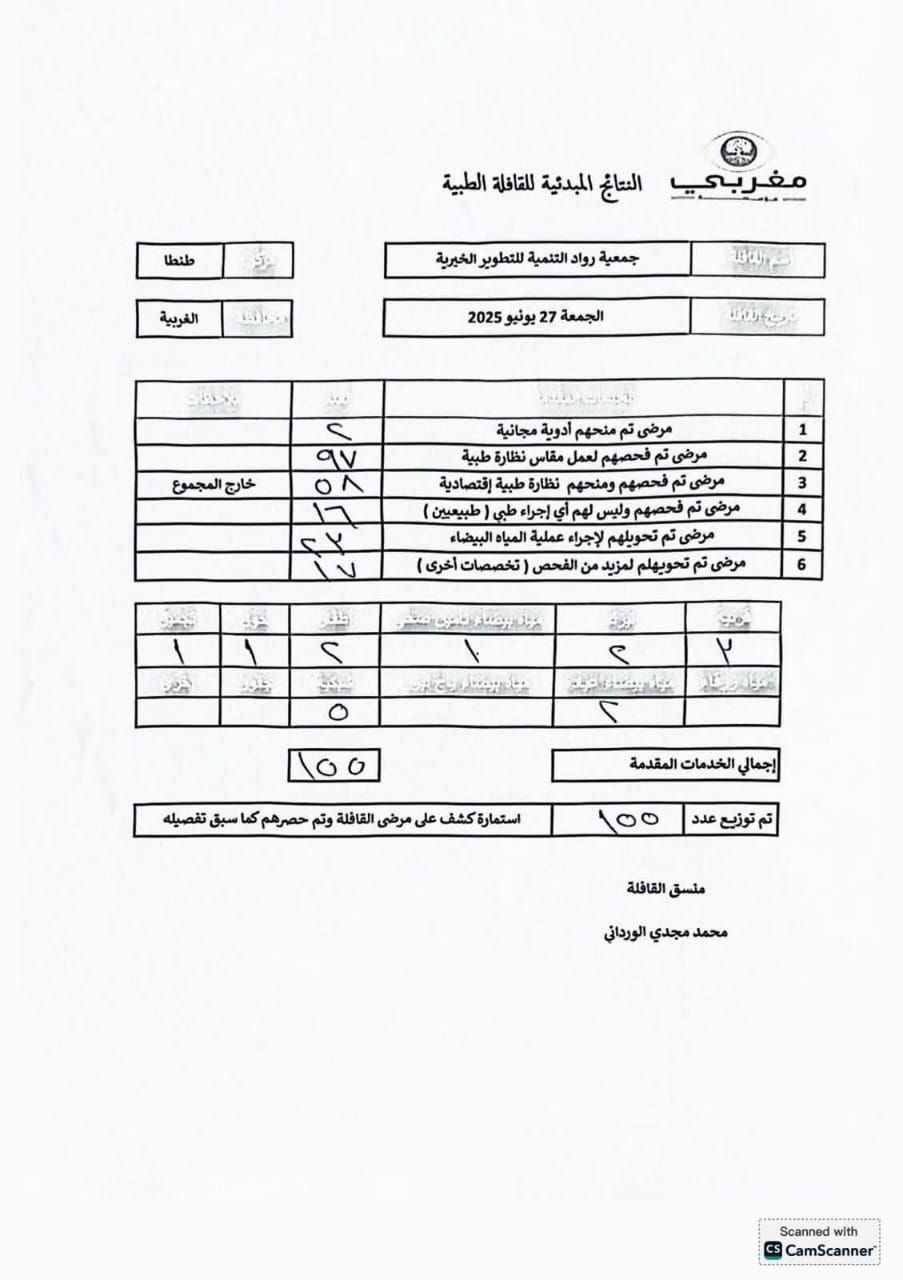 مغربي
النتائج المبدئية للقافلة الطبية
اسم القافلة جمعية رواد التنمية للتطوير الخيرية مركز طنطا
تاريخ القافلة الجمعة 27 يونيو 2025 محافظة الغربية
م الخدمات المقدمة العدد ملاحظات
1 مرضى تم منحهم أدوية مجانية ٢
2 مرضى تم فحصهم لعمل مقاس نظارة طبية ٩٧
3 مرضى تم فحصهم ومنحهم نظارة طبية إقتصادية ٥٨ خارج المجموع
4 مرضى تم فحصهم وليس لهم أي إجراء طبي ( طبيعيين ) ١٦
5 مرضى تم تحويلهم لإجراء عملية المياه البيضاء ٢٣
6 مرضى تم تحويهلم لمزيد من الفحص ( تخصصات أخرى ) ١٧
٣ ٢ ١٠ ٢ ١ ١
مياه زرقاء مياه بيضاء شبكية
٢ ٥
إجمالي الخدمات المقدمة ١٥٥
تم توزيع عدد ١٥٥ استمارة كشف على مرضى القافلة وتم حصرهم كما سبق تفصيله
منسق القافلة
محمد مجدي الورداني
Scanned with
CS CamScanner